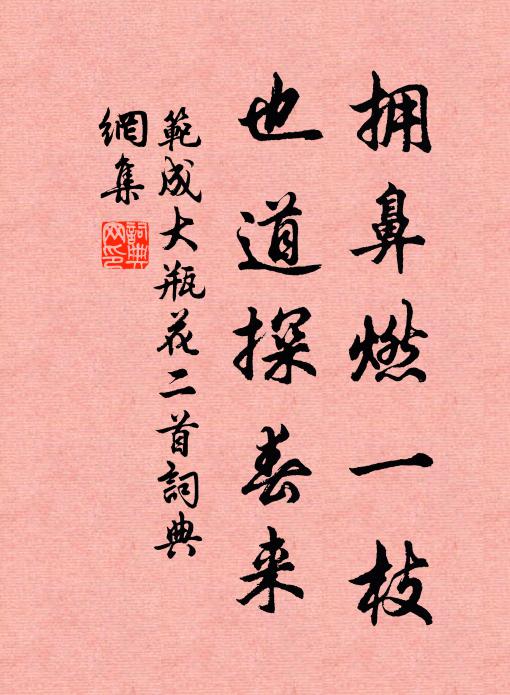 拥鼻燃一枝
也道探春来
範成大瓶花二首詞典
網集
詞典
网印